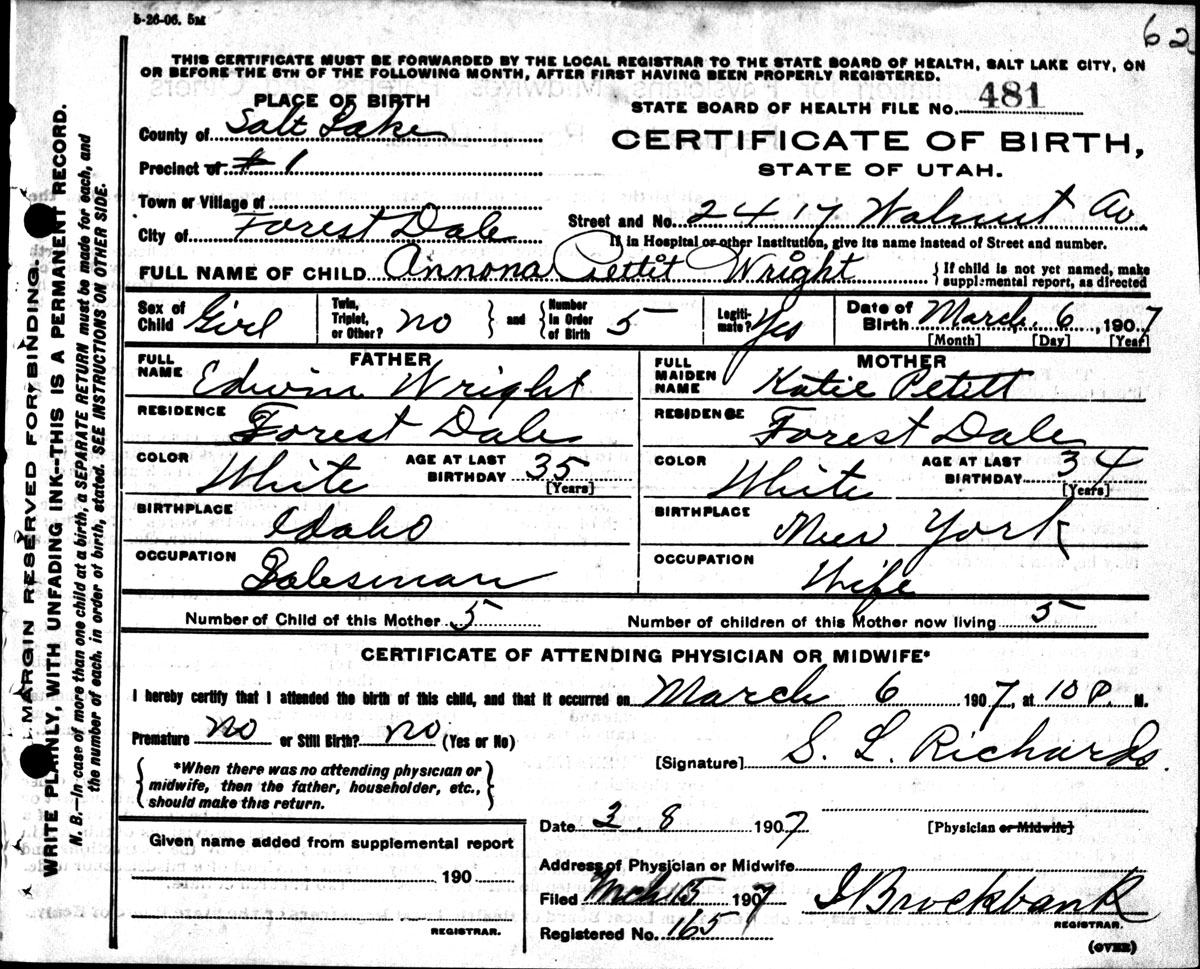 5-26-06. 5M
62
THIS CERTIFICATE MUST BE FORWARDED BY THE LOCAL REGISTRAR TO THE STATE BOARD OF HEALTH, SALT LAKE CITY, ON
OR BEFORE THE 5TH OF THE FOLLOWING MONTH, AFTER FIRST HAVING BEEN PROPERLY REGISTERED.
PLACE OF BIRTH
STATE BOARD OF HEALTH FILE NO. 481
County of Salt Lake
CERTIFICATE OF BIRTH,
Precinct of # 1
STATE OF UTAH.
Town or Village of
Street and No. 2417 Walnut Av
City of Forest Dale
If in Hospital or other Institution, give its name instead of Street and number.
FULL NAME OF CHILD Annona Pettit Wright
{ If child is not yet named, make
supplemental report, as directed
Sex of Child Girl
Twin, Triplet, or Other? no } and { Number In Order of Birth 5
Legiti- mate? Yes
Date of Birth March 6, 1907
[Month] [Day] [Year]
FATHER
MOTHER
FULL NAME Edwin Wright
FULL MAIDEN NAME Katie Petitt
RESIDENCE Forest Dale
RESIDENCE Forest Dale
COLOR White AGE AT LAST BIRTHDAY 35 [Years]
COLOR White AGE AT LAST BIRTHDAY 34 [Years]
BIRTHPLACE Idaho
BIRTHPLACE New York
OCCUPATION Salesman
OCCUPATION Wife
Number of Child of this Mother 5
Number of children of this Mother now living 5
CERTIFICATE OF ATTENDING PHYSICIAN OR MIDWIFE*
I hereby certify that I attended the birth of this child, and that it occurred on March 6 1907, at 10 P. M.
Premature no or Still Birth? no (Yes or No)
[Signature] S. L. Richards
{ *When there was no attending physician or
midwife, then the father, householder, etc.,
should make this return. }
Date 3. 8 1907
[Physician or Midwife]
Given name added from supplemental report
190
REGISTRAR.
Address of Physician or Midwife
Filed Mch 15 1907 J Brockbank
REGISTRAR.
Registered No. 165
(OVER)
MARGIN RESERVED FOR BINDING.
WRITE PLAINLY, WITH UNFADING INK—THIS IS A PERMANENT RECORD.
N. B.—In case of more than one child at a birth, a SEPARATE RETURN must be made for each, and
the number of each, in order of birth, stated. SEE INSTRUCTIONS ON OTHER SIDE.